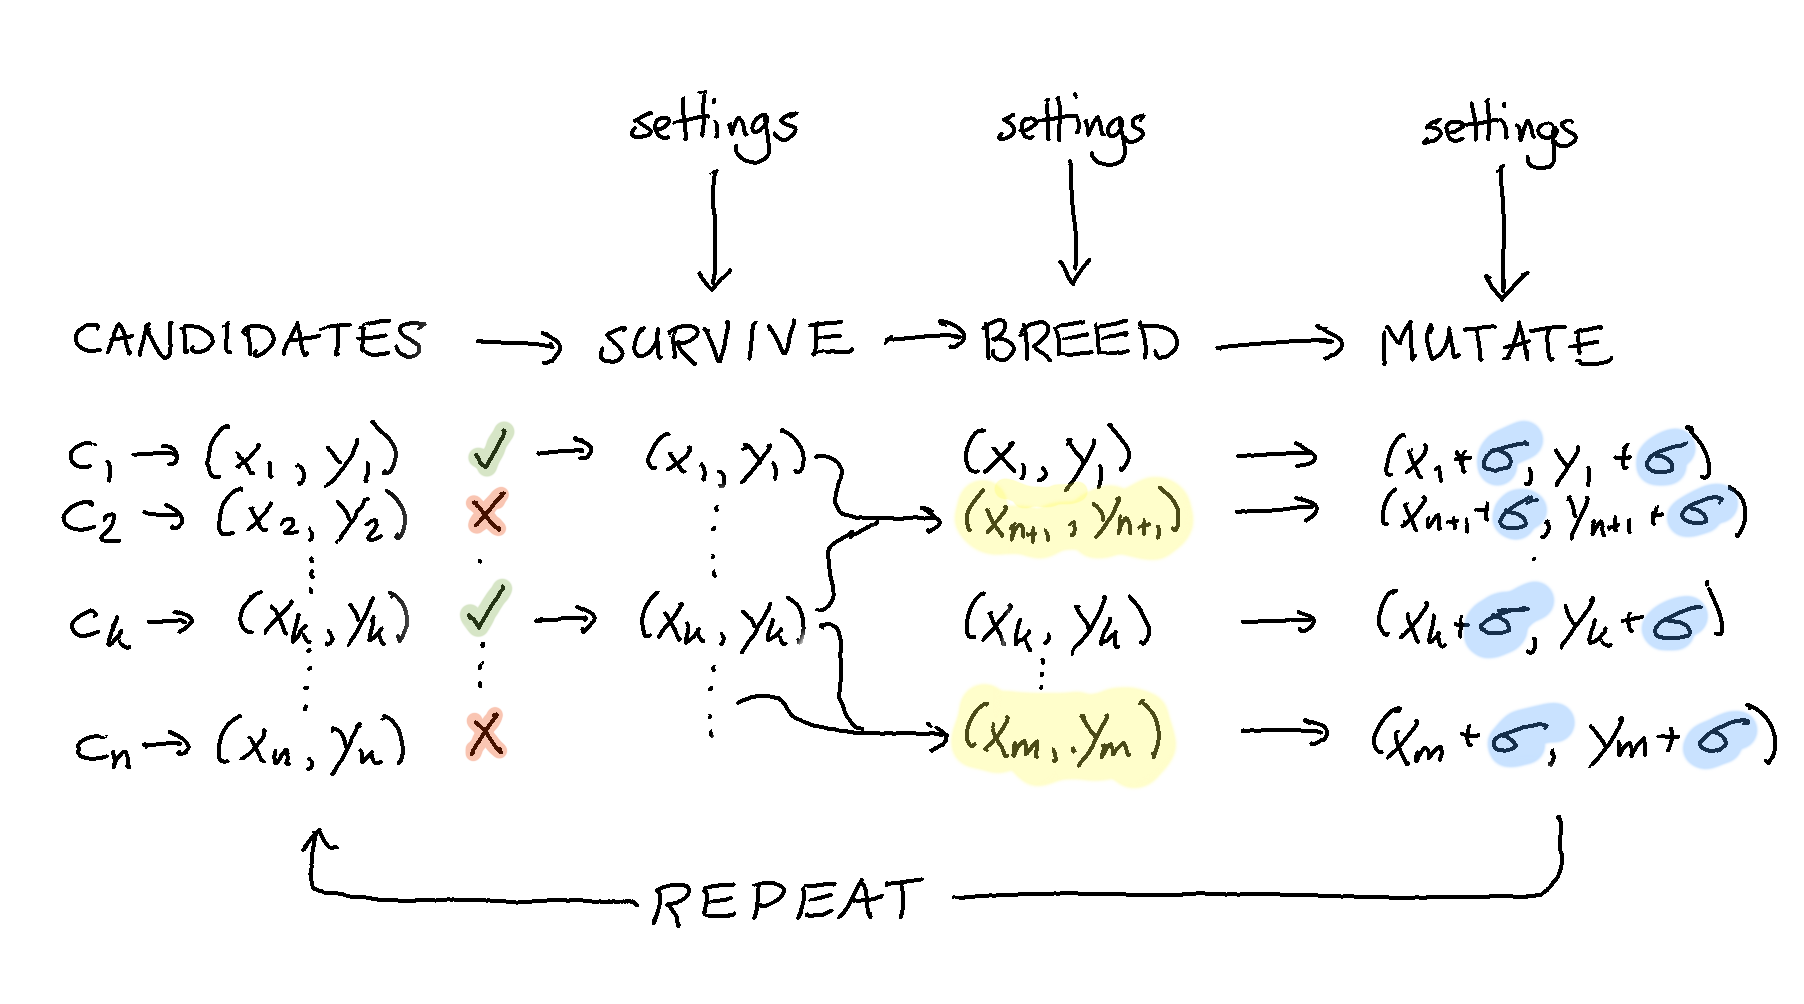 settings settings settings
CANDIDATES → SURVIVE → BREED → MUTATE
C₁ → (x₁, y₁) ✓ → (x₁, y₁) (x₁, y₁) → (x₁+σ, y₁+σ)
C₂ → (x₂, y₂) ✗ (xₙ₊₁, yₙ₊₁) → (xₙ₊₁+σ, yₙ₊₁+σ)
Cₖ → (xₖ, yₖ) ✓ → (xₖ, yₖ) (xₖ, yₖ) → (xₖ+σ, yₖ+σ)
Cₙ → (xₙ, yₙ) ✗ (xₘ, yₘ) → (xₘ+σ, yₘ+σ)
REPEAT